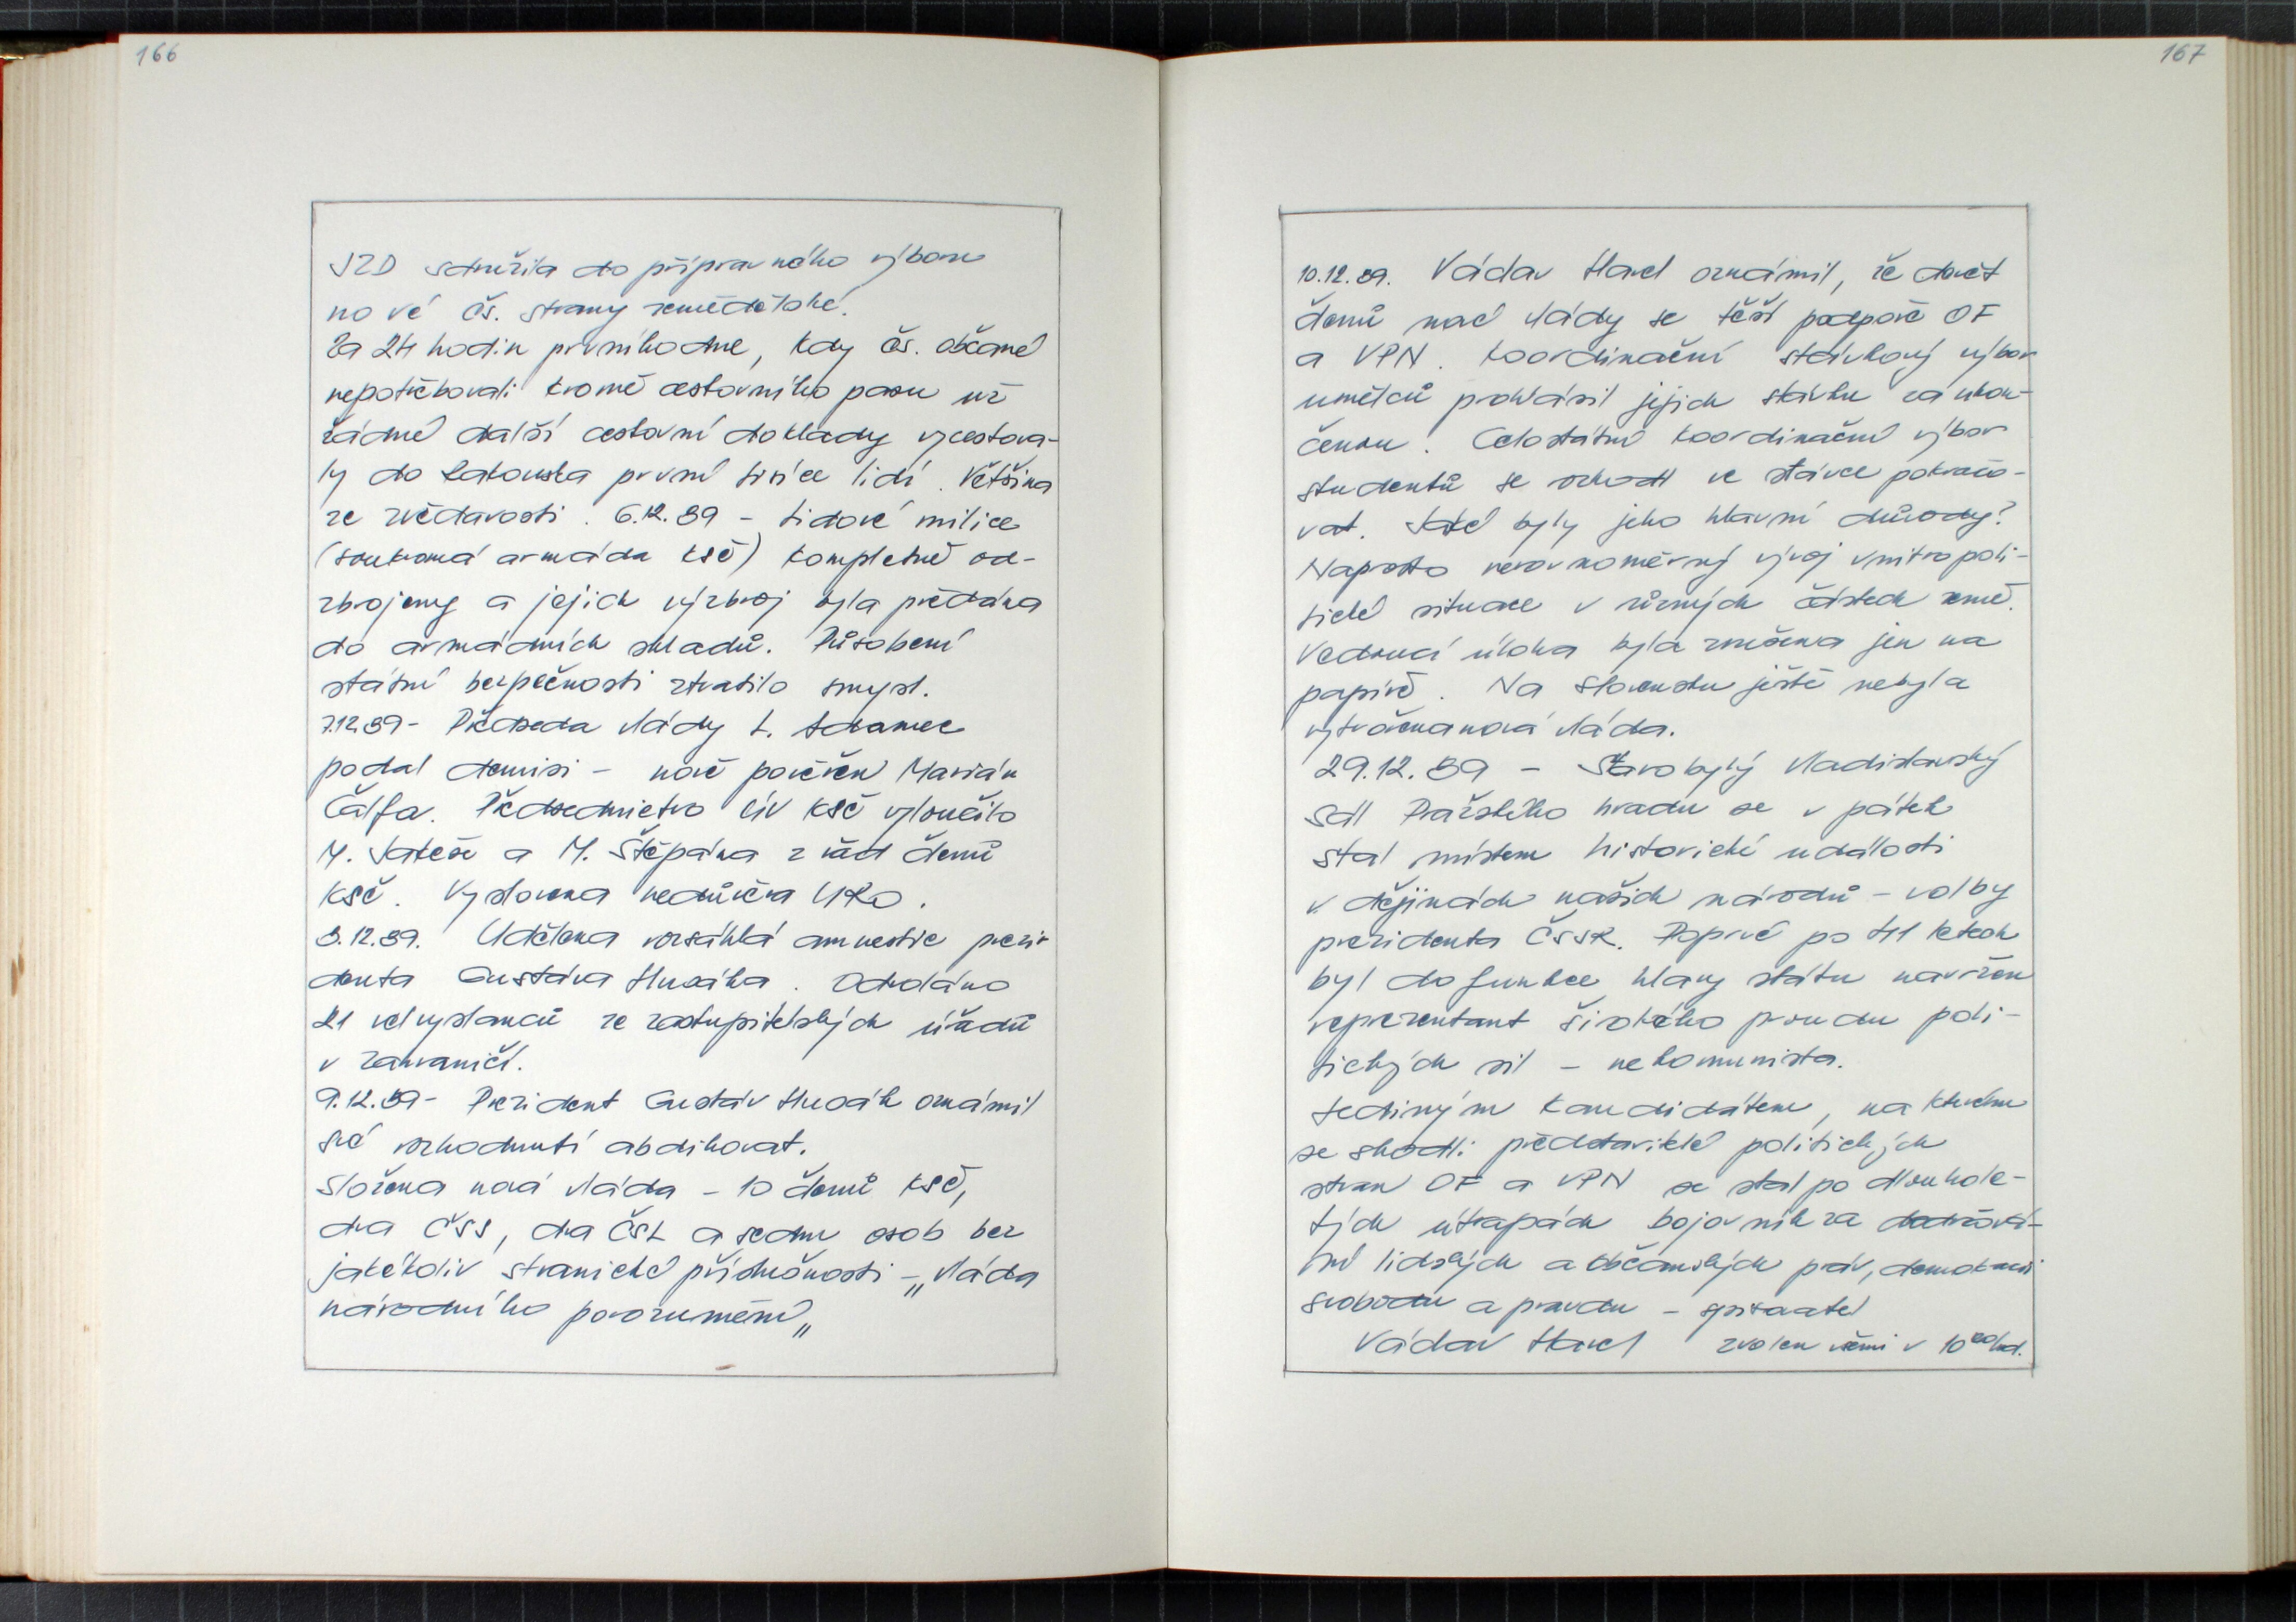 166
JZD sdružila do přípravného výboru
nové čs. strany zemědělské.
Za 24 hodin prvního dne, kdy čs. občané
nepotřebovali kromě cestovního pasu už
žádné další cestovní doklady vycestova-
ly do Rakouska první tisíce lidí. Většina
ze zvědavosti. 6.12.89 - Lidové milice
(soukromá armáda KSČ) kompletně od-
zbrojeny a jejich výzbroj byla předána
do armádních skladů. Působení
státní bezpečnosti ztratilo smysl.
7.12.89 - Předseda vlády L. Adamec
podal demisi - nově pověřen Marián
Čalfa. Předsednictvo ÚV KSČ vyloučilo
M. Jakeše a M. Štěpána z řad členů
KSČ. Vyslovena nedůvěra ÚRO.
8.12.89. Udělena rozsáhlá amnestie prezi-
denta Gustáva Husáka. Odvoláno
21 velvyslanců ze zastupitelských úřadů
v zahraničí.
9.12.89 - Prezident Gustáv Husák oznámil
své rozhodnutí abdikovat.
Složena nová vláda - 10 členů KSČ,
dva ČSS, dva ČSL a sedm osob bez
jakékoliv stranické příslušnosti - „vláda
národního porozumění„
167
10.12.89. Václav Havel oznámil, že devět
členů nové vlády se těší podpoře OF
a VPN. Koordinační stávkový výbor
umělců prohlásil jejich stávku za ukon-
čenou. Celostátní koordinační výbor
studentů se rozhodl ve stávce pokračo-
vat. Jaké byly jeho hlavní důvody?
Naprosto nerovnoměrný vývoj vnitropoli-
tické situace v různých částech země.
Vedoucí úloha byla zrušena jen na
papíře. Na Slovensku ještě nebyla
vytvořena nová vláda.
29.12.89 - Starobylý Vladislavský
sál Pražského hradu se v pátek
stal místem historické události
v dějinách našich národů - volby
prezidenta ČSSR. Poprvé po 41 letech
byl do funkce hlavy státu navržen
reprezentant širokého proudu poli-
tických sil - nekomunista.
Jediným kandidátem, na kterém
se shodli představitelé politických
stran OF a VPN se stal po dlouhole-
tých útrapách bojovník za dodržová-
ní lidských a občanských práv, demokracii
svobodu a pravdu - spisovatel
Václav Havel zvolen všemi v 10⁰⁰ hod.